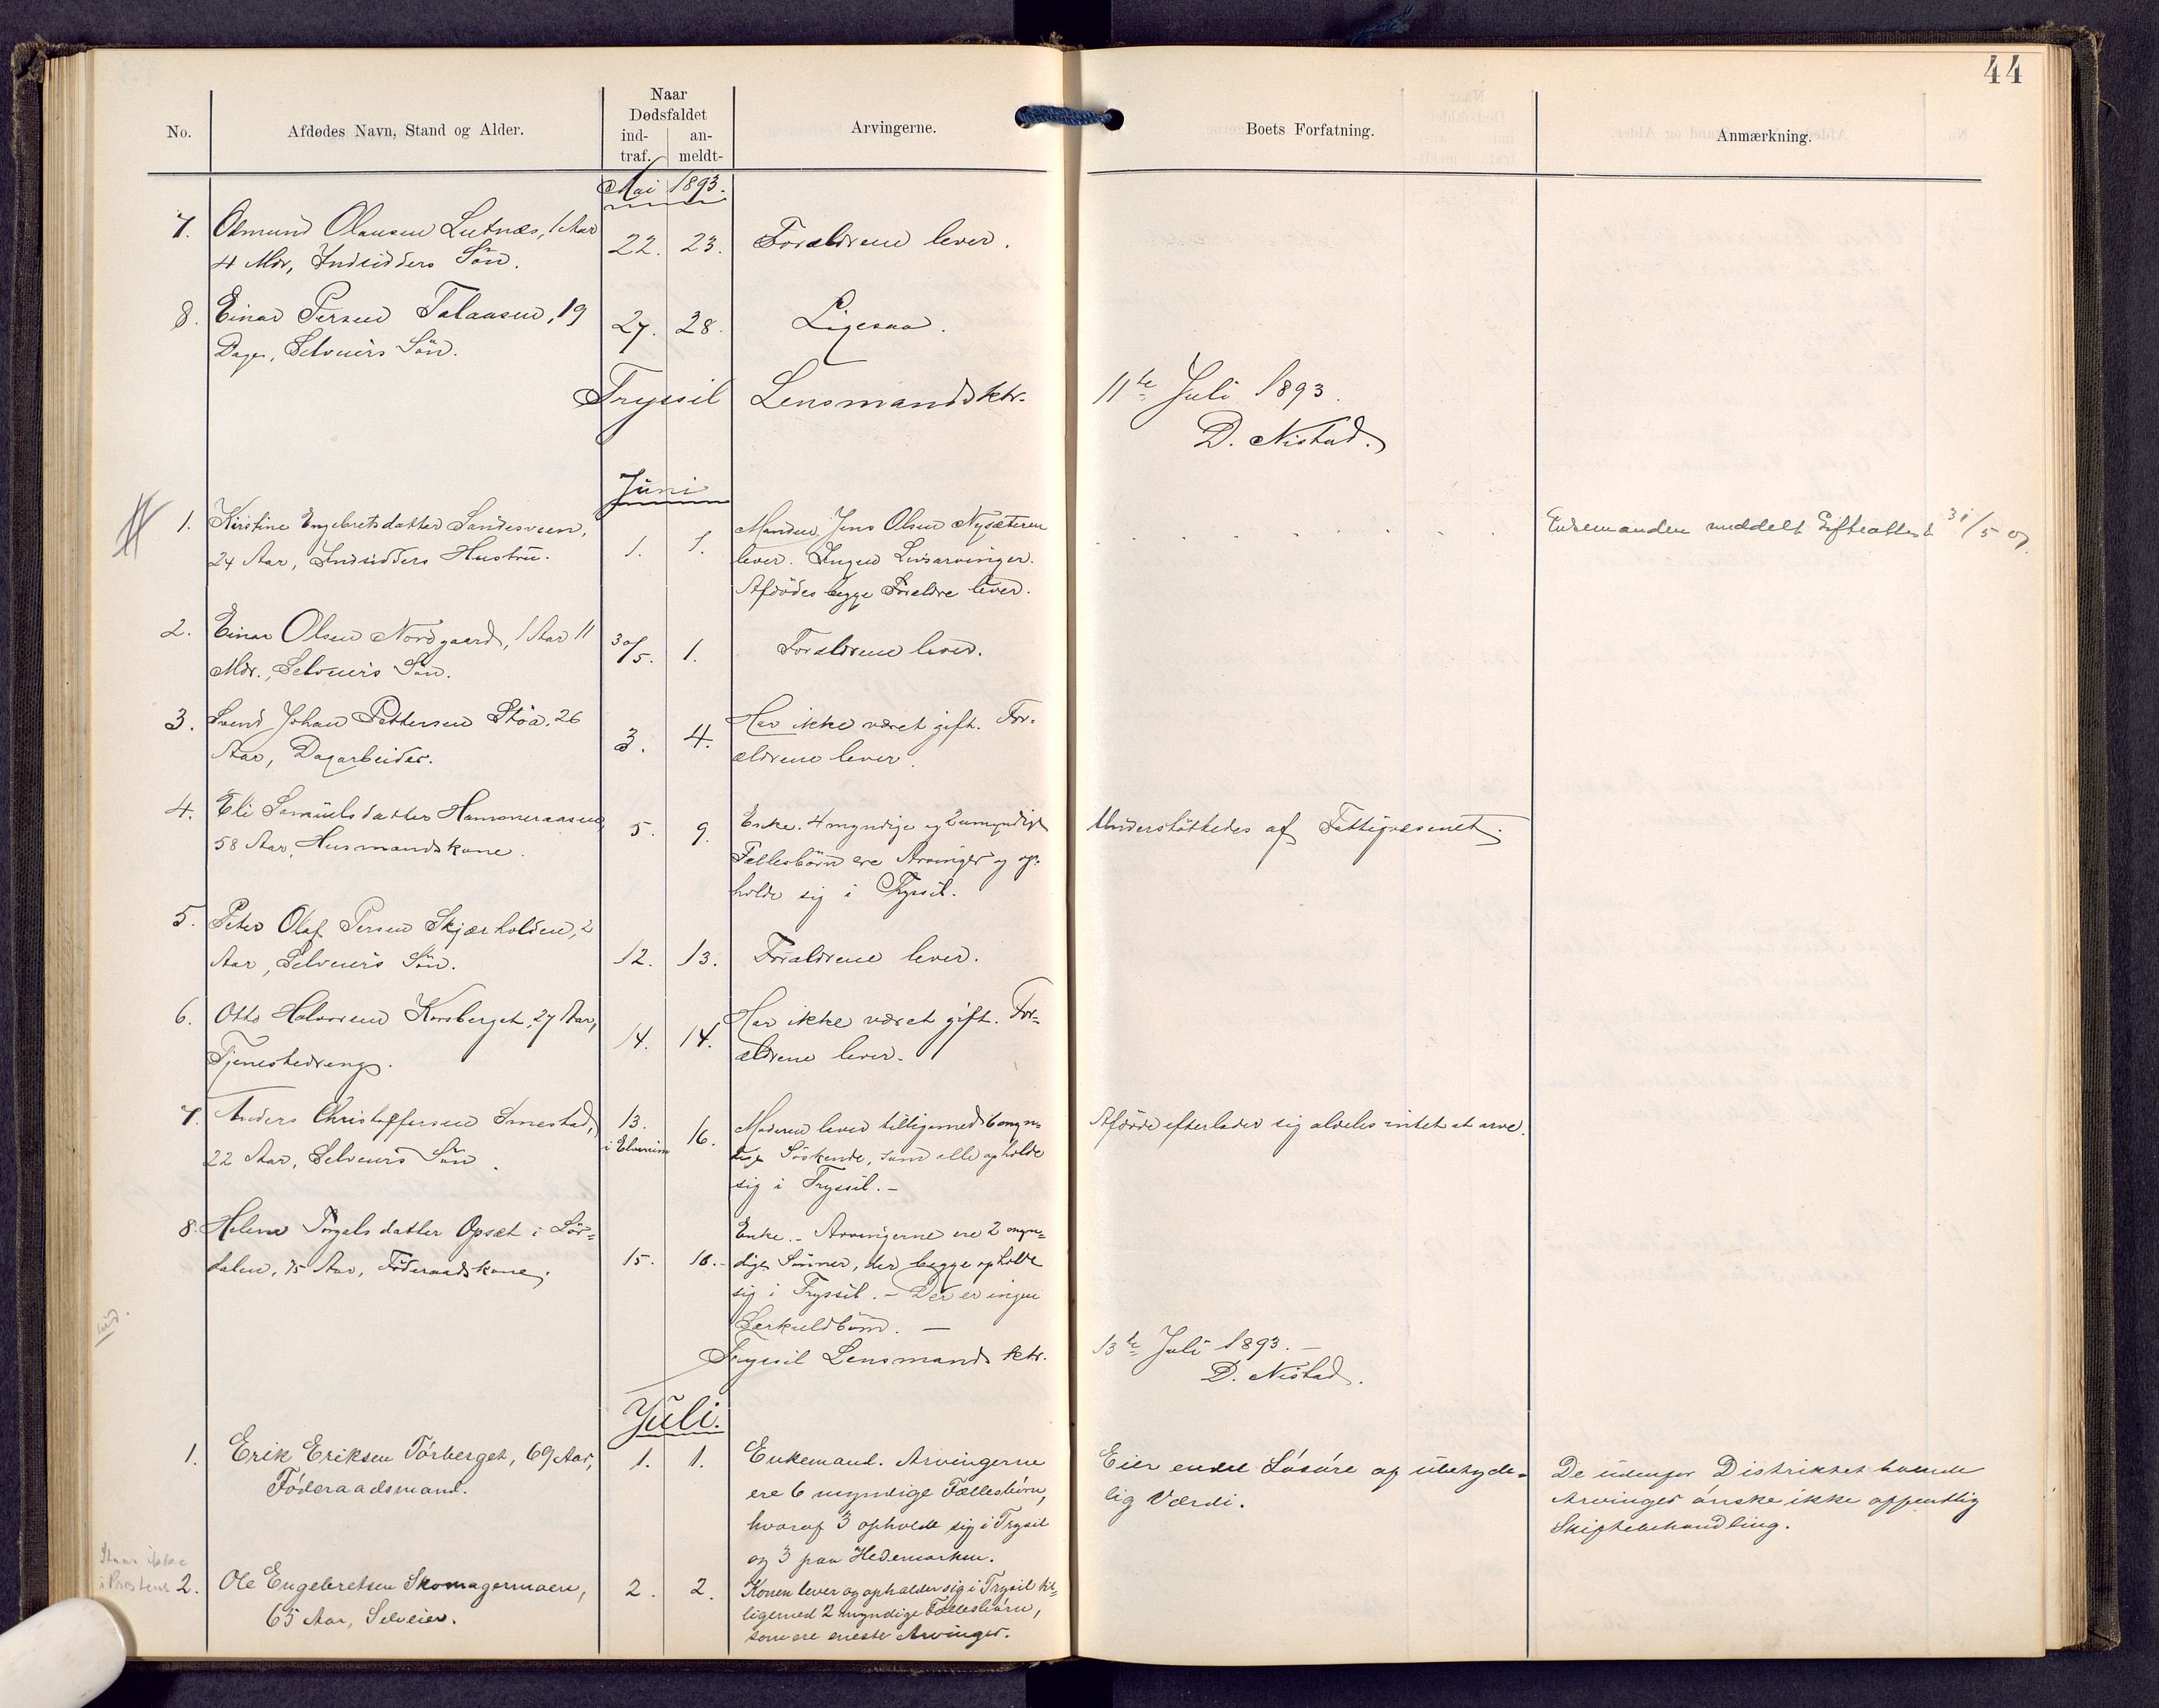 44
No.
Afdødes Navn, Stand og Alder.
Naar
Dødsfaldet
ind-
traf.
an-
meldt-
Arvingerne.
Boets Forfatning.
Anmærkning.
Mai 1893.
7. Olausen Lutnæs, 1 Aar
4 Mdr, Indsidders Sön. 22. 23. Forældrene lever.
8. Einar Persen 19
Dage, Selveiers Sön. 27. 28. Ligesaa.
Trysil Lensmandsktr. 11te Juli 1893.
D. Nistad.
Juni
1. Kirstine Engebretsdatter Sandesveen,
24 Aar, Indsidders Hustru. 1. 1.
Manden Jens Olsen Nysæteren
lever. Ingen Livsarvinger.
Afdödes begge Forældre lever.
Enkemanden meddelt Gifteattest 31/5 07.
2. Einar Olsen Nordgaard, 1 Aar 11
Mdr., Selveiers Sön. 30/5. 1. Forældrene lever.
3. Svend Johan Pettersen Stöa, 26
Aar, Dagarbeider. 3. 4.
Har ikke været gift. For-
ældrene lever.
4. Eli Samuelsdatter Hammeraasen,
58 Aar, Husmandskone. 5. 9.
Enke. 4 myndige og 2 umyndige
Fællesbörn ere Arvinger og op-
holde sig i Trysil.
Understöttedes af Fattigvæsenet.
5. Peter Olaf Persen Skjærholden, 2
Aar, Selveiers Sön. 12. 13. Forældrene lever.
6. Otto Halvorsen Korsberget, 27 Aar,
Tjenestedreng. 14. 14.
Har ikke været gift. For-
ældrene lever.
7. Anders Christoffersen Smestad,
22 Aar, Selveiers Sön. 13.
i Elverum 16.
Moderen lever tilligemed 6 myn-
dige Söskende, som alle opholde
sig i Trysil.-
Afdöde efterlader sig aldeles intet at arve.
8. Helene Opsæt i Lör-
dalen, 75 Aar, Föderaadskone. 15. 16.
Enke.- Arvingerne ere 2 myn-
dige Sönner, der begge opholde
sig i Trysil.- Der er ingen
Særkuldbörn. -
Trysil Lensmandsktr. 13te Juli 1893. -
D. Nistad.
Juli.
1. Erik Eriksen Törberget, 69 Aar,
Föderaadsmand. 1. 1.
Enkemand. Arvingerne
ere 6 myndige Fællesbörn,
hvoraf 3 opholde sig i Trysil
og 3 paa Hedemarken.
Eier endel Lösöre af ubetyde-
lig Værdi.
De udenfor Distriktet boende
Arvinger önske ikke offentlig
Skiftebehandling.
Staar ikke
i Prestens
2. Ole Engebretsen Skomagermoen,
65 Aar, Selveier. 2. 2.
Konen lever og opholder sig i Trysil til-
ligemed 2 myndige Fællesbörn,
som ere eneste Arvinger.